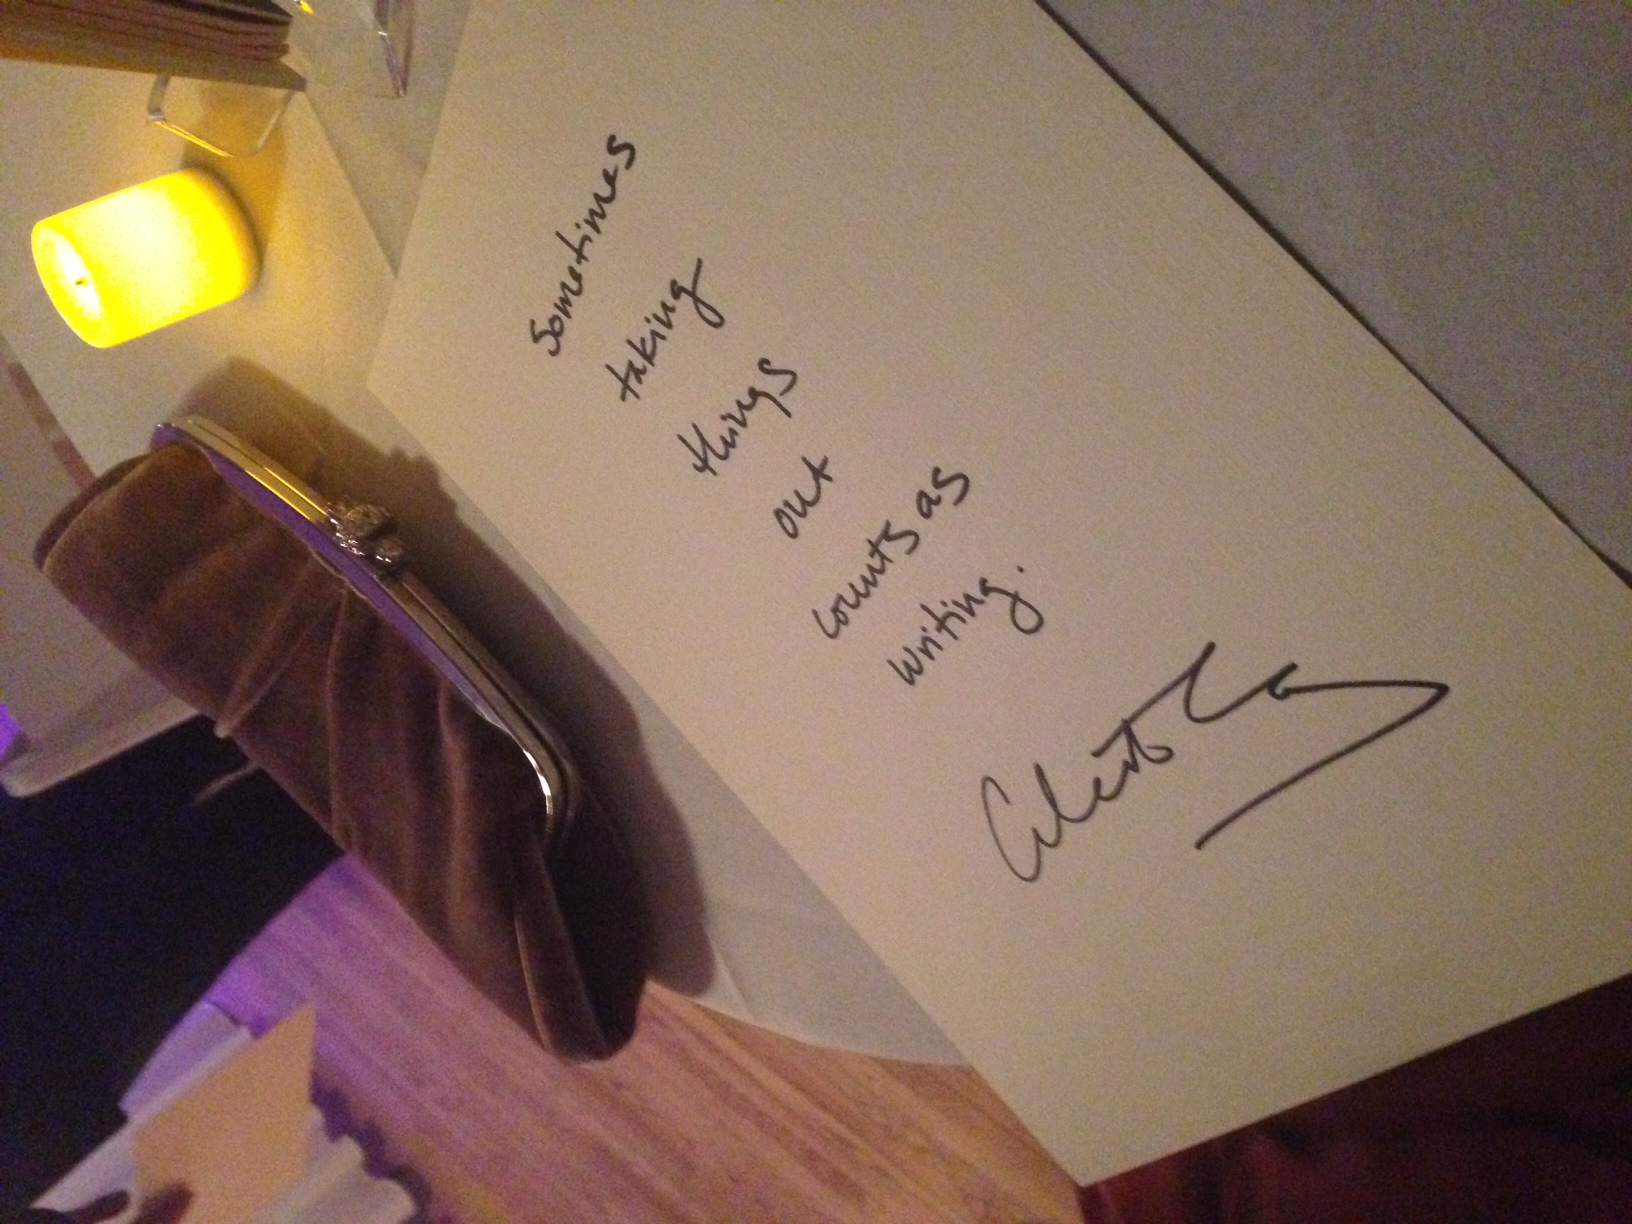 Sometimes
taking
things
out
counts as
writing.